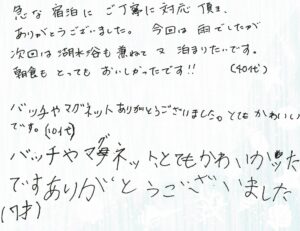 急な宿泊にご丁寧に対応頂き
ありがとうございました。今回は雨でしたが
次回は湖水浴も兼ねて又泊まりたいです。
朝食もとってもおいしかったです!! (40代)
バッチやマグネットありがとうございました。とてもかわいい
です。(10代)
バッチやマグネット、とてもかわいかった
ですありがとうございました
(7才)